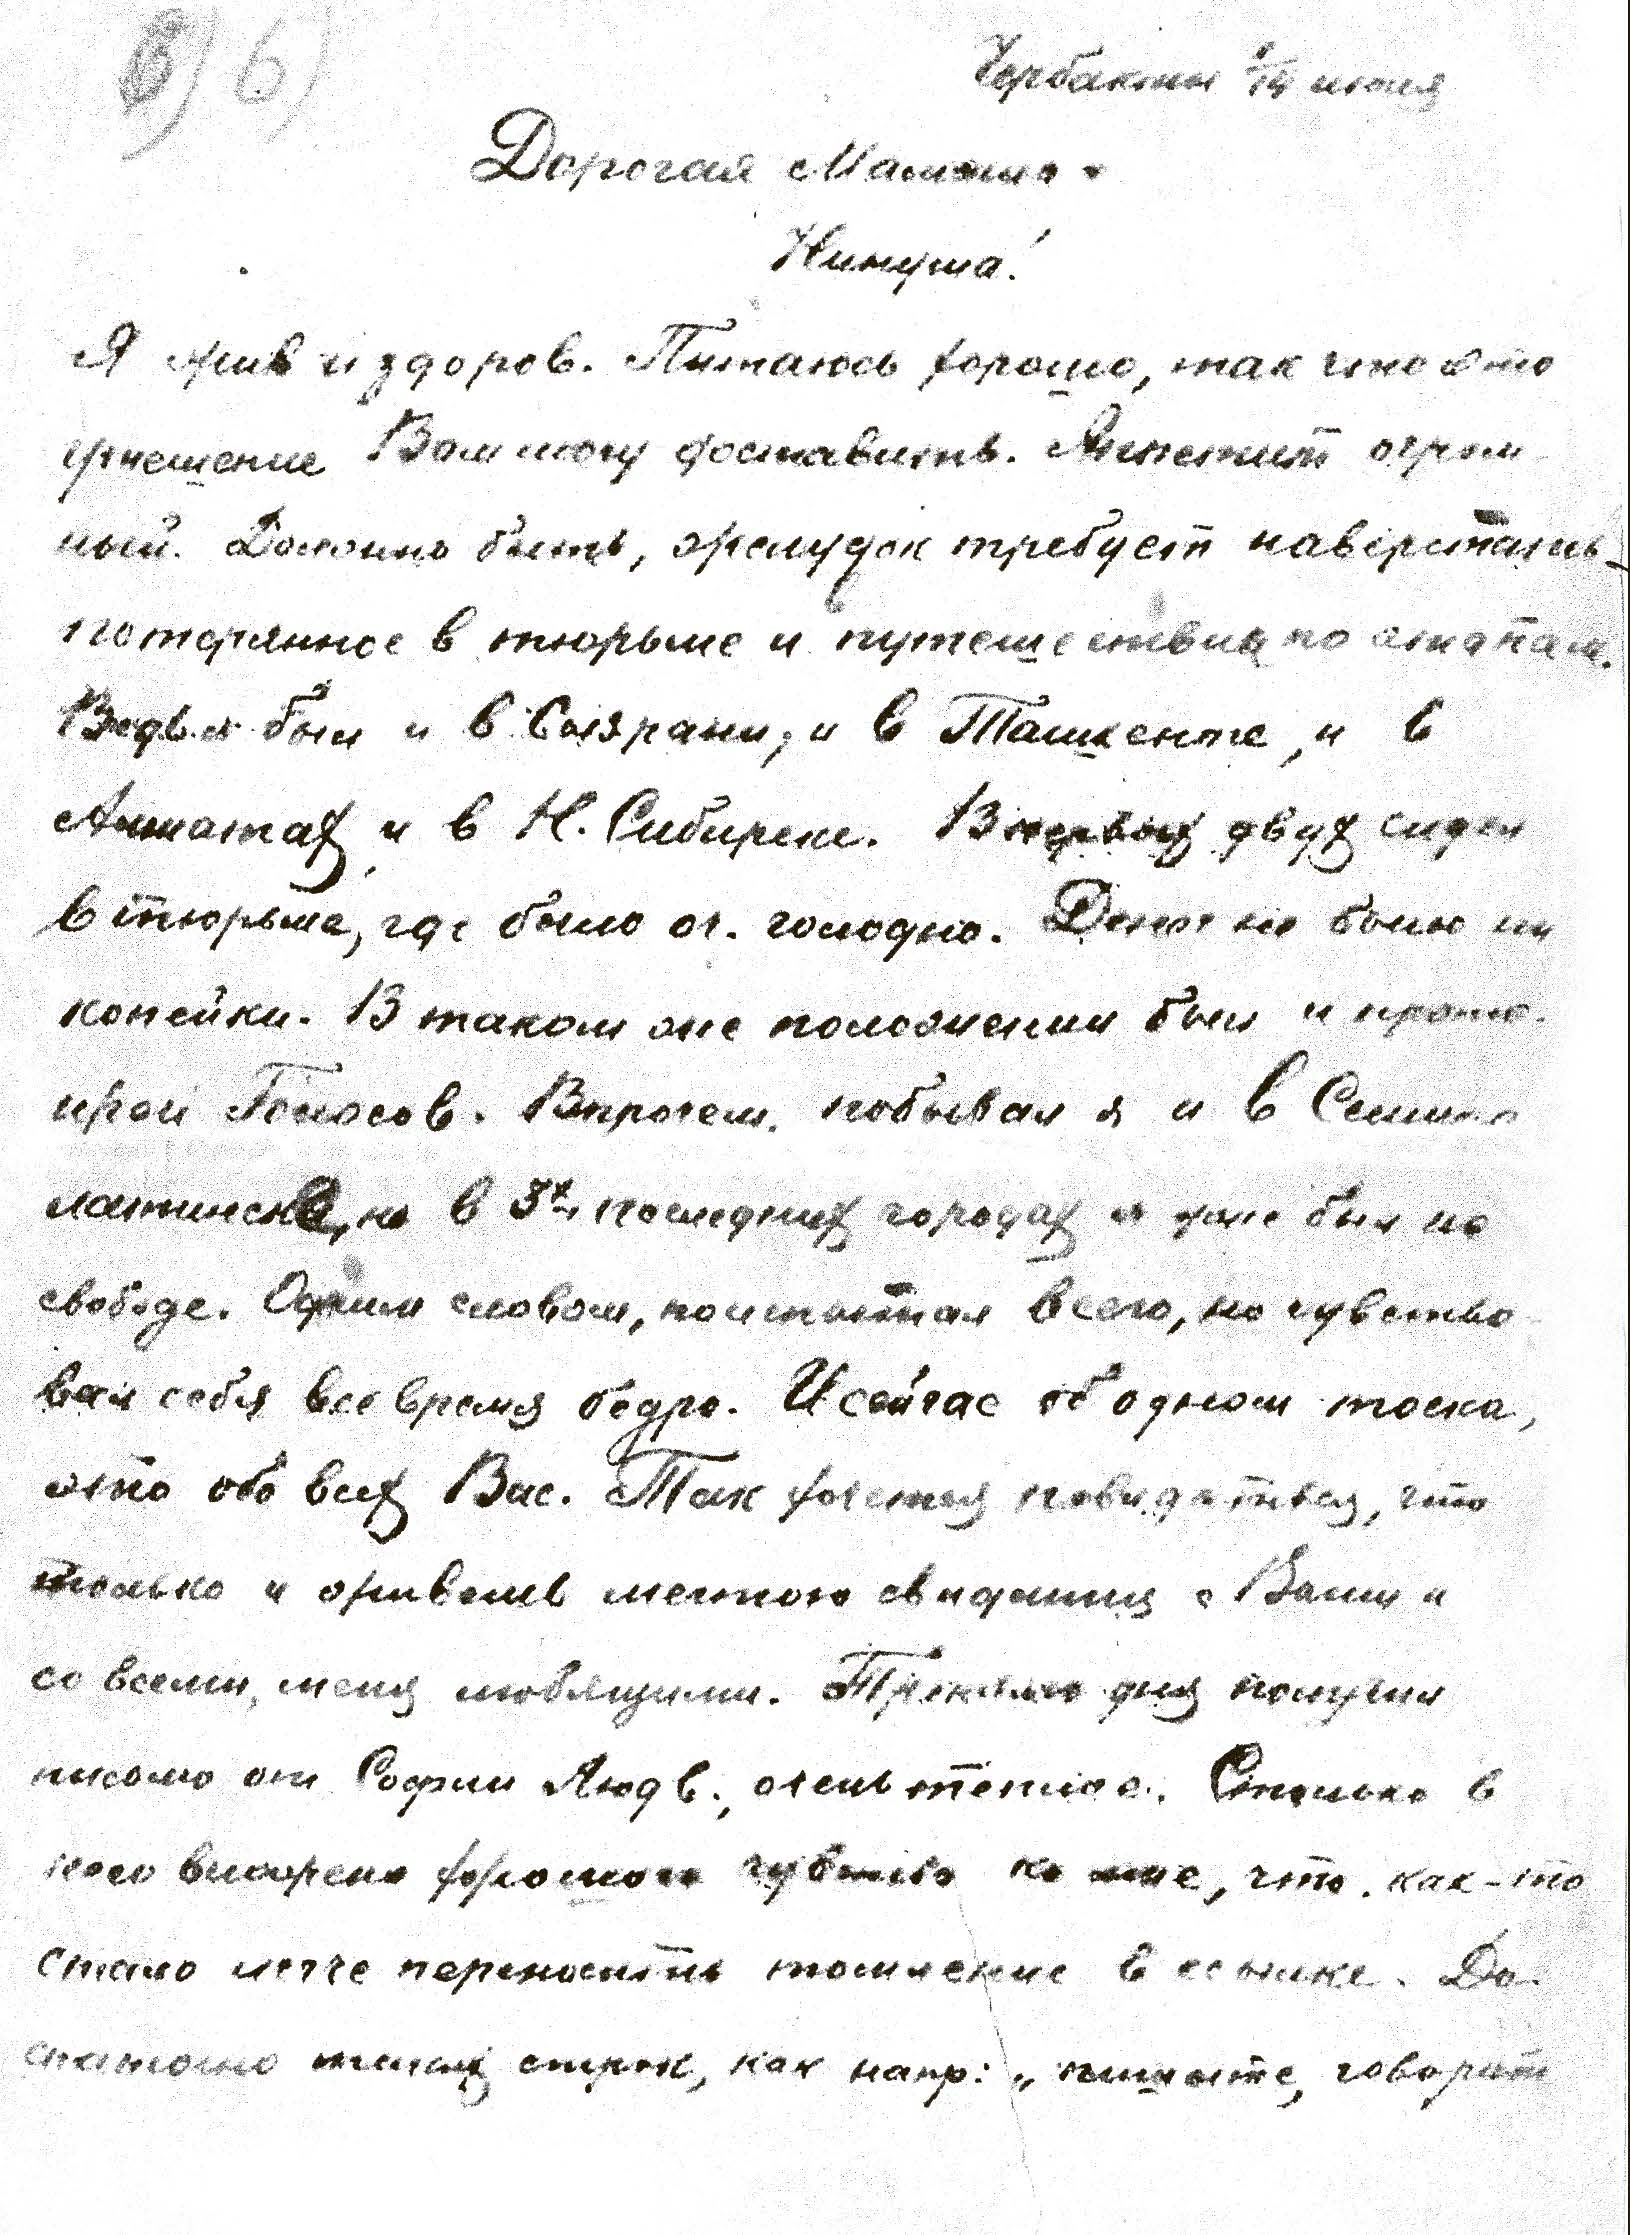 6) 6)
Чорбакты 1/14 июня
Дорогая Мамаша и
Нинуша!
Я жив и здоров. Питаюсь хорошо, так что это
утешение Вам могу доставить. Аппетит огром
ный. Должно быть, желудок требует наверстать
потерянное в тюрьме и путешествии по этапам.
Ведь я был и в Сызрани, и в Ташкенте, и в
Алматах, и в Н. Сибирске. В первых двух сидел
в тюрьме, где было оч. голодно. Денег не было ни
копейки. В таком же положении был и прото-
иерей Голосов. Впрочем, побывал я и в Семипа
латинске, но в 3х последних городах я уже был на
свободе. Одним словом, поиспытал всего, но чувство
вал себя все время бодро. И сейчас об одном тоска,
это обо всех Вас. Так хочется повидаться, что
только и живешь мечтою свидания с Вами и
со всеми, меня любящими. Третьего дня получил
письмо от Софии Людв., очень теплое. Столько в
него вложено хорошего чувства ко мне, что как-то
стало легче переносить томление в ссылке. До-
статочно таких строк, как напр: „ пишите, говорит